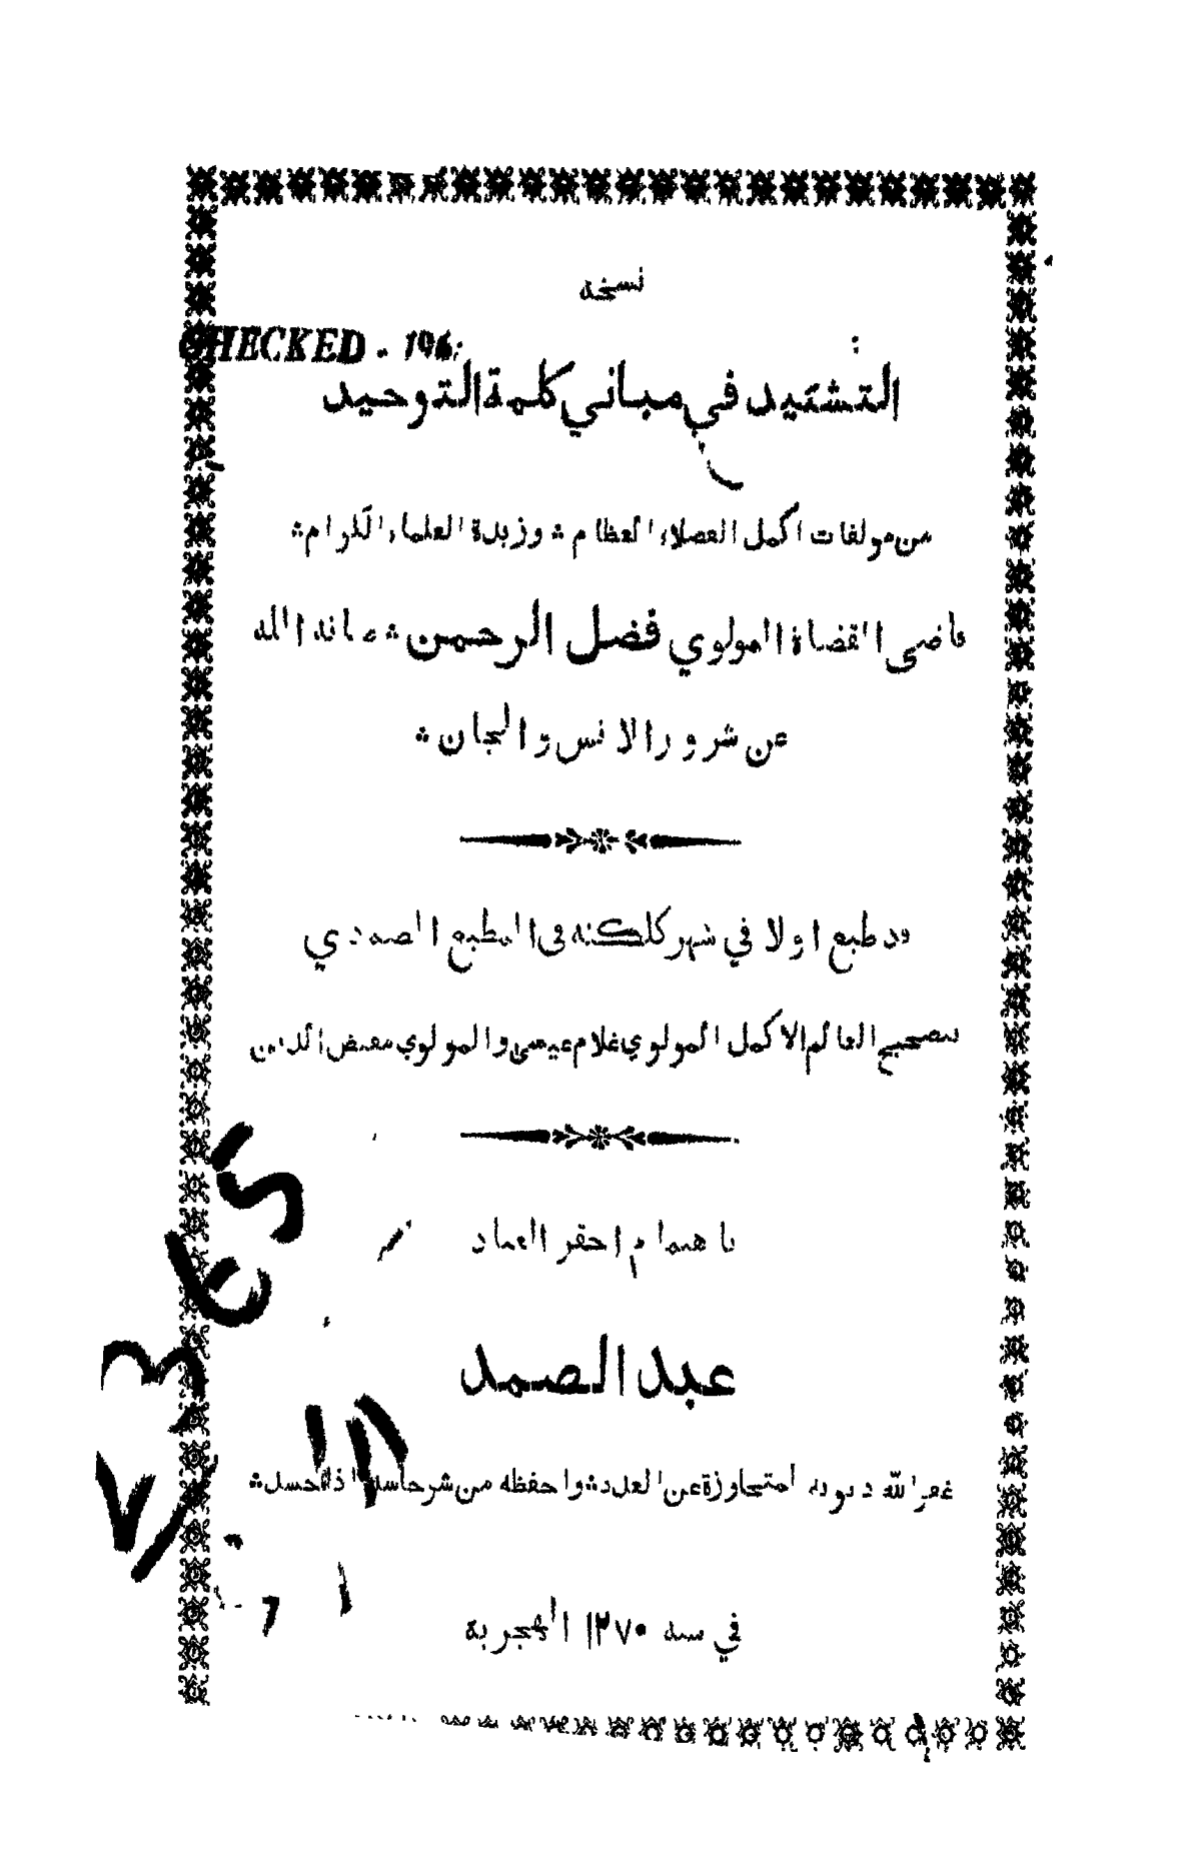 نسخه
CHECKED - 196
التشئيد في مباني كلمة التوحيد
من مولفات اكمل الفضلاء العظام * وزبدة العلماء الكرام *
قاضى القضاة المولوي فضل الرحمن * صانه الله
عن شرور الانس والجان *
قد طبع اولا في شهر كلكته فى المطبع الصمدي
بتصحيح العالم الاكمل المولوي غلام عيسى والمولوي الدين
باهتمام احقر العباد
عبد الصمد
غفر الله ذنوبه متجاوزة عن العدد * واحفظه من شر حاسد اذا حسد *
في سنه ١٢٧٠ الهجرية